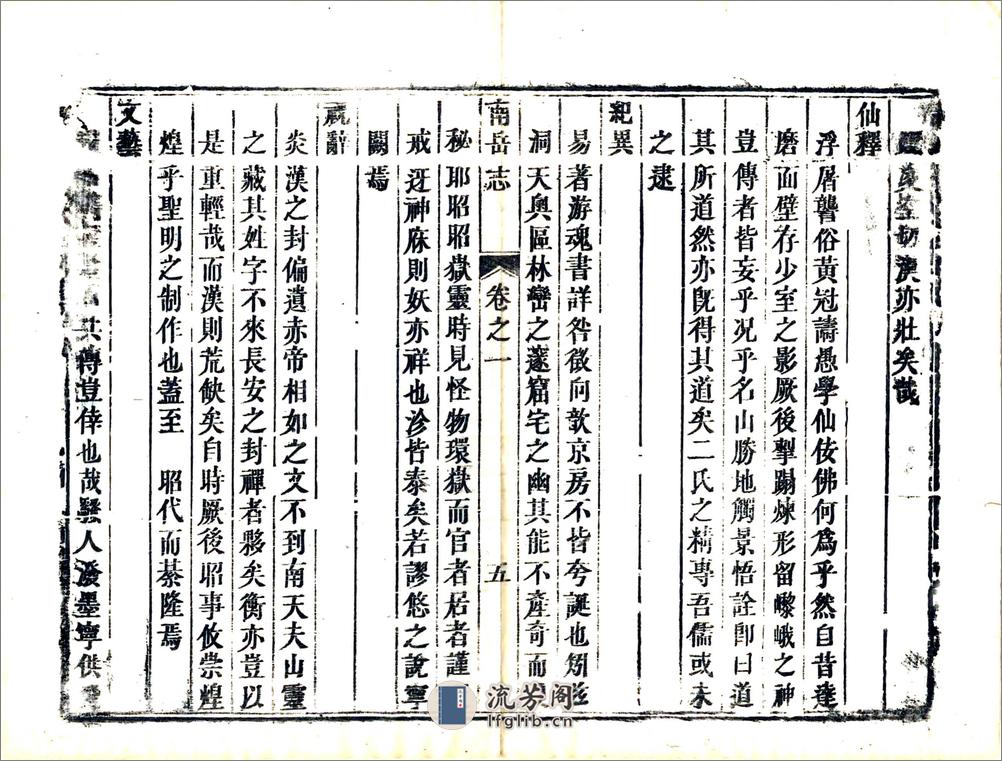 亦壯矣哉
仙釋
浮屠聾俗黃冠譸愚學仙佞佛何爲乎然自昔達
磨面壁存少室之影厥後㧓蹋煉形留巎峨之神
豈傳者皆妄乎况乎名山勝地觸景悟詮卽曰道
其所道然亦旣得其道矣二氏之精專吾儒或未
之逮
紀異
易著游魂書詳咎徵向歆京房不皆夸誕也矧茲
洞天奧區林巒之邃窟宅之幽其能不產奇而
南岳志 卷之一 五
秘耶昭昭嶽靈時見怪物環嶽而官者居者謹
戒迓神庥則妖亦祥也沴皆泰矣若謬悠之說寧
闕焉
祝辭
炎漢之封偏遺赤帝相如之文不到南天夫山靈
之藏其姓字不來長安之封禪者夥矣衡亦豈以
是重輕哉而漢則荒缺矣自時厥後昭事攸崇煌
煌乎聖明之制作也蓋至 昭代而綦隆焉
文藝
其傳豈倖也哉騷人潑墨寧供
流芳阁
lfglib.cn